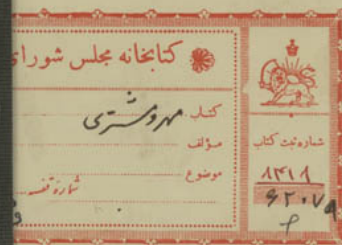 کتابخانه مجلس شورای
کتاب مهر و مشتری
مؤلف
موضوع
شماره قفسه
شماره ثبت کتاب
۸۴۱۸
۶۲۰۷۹